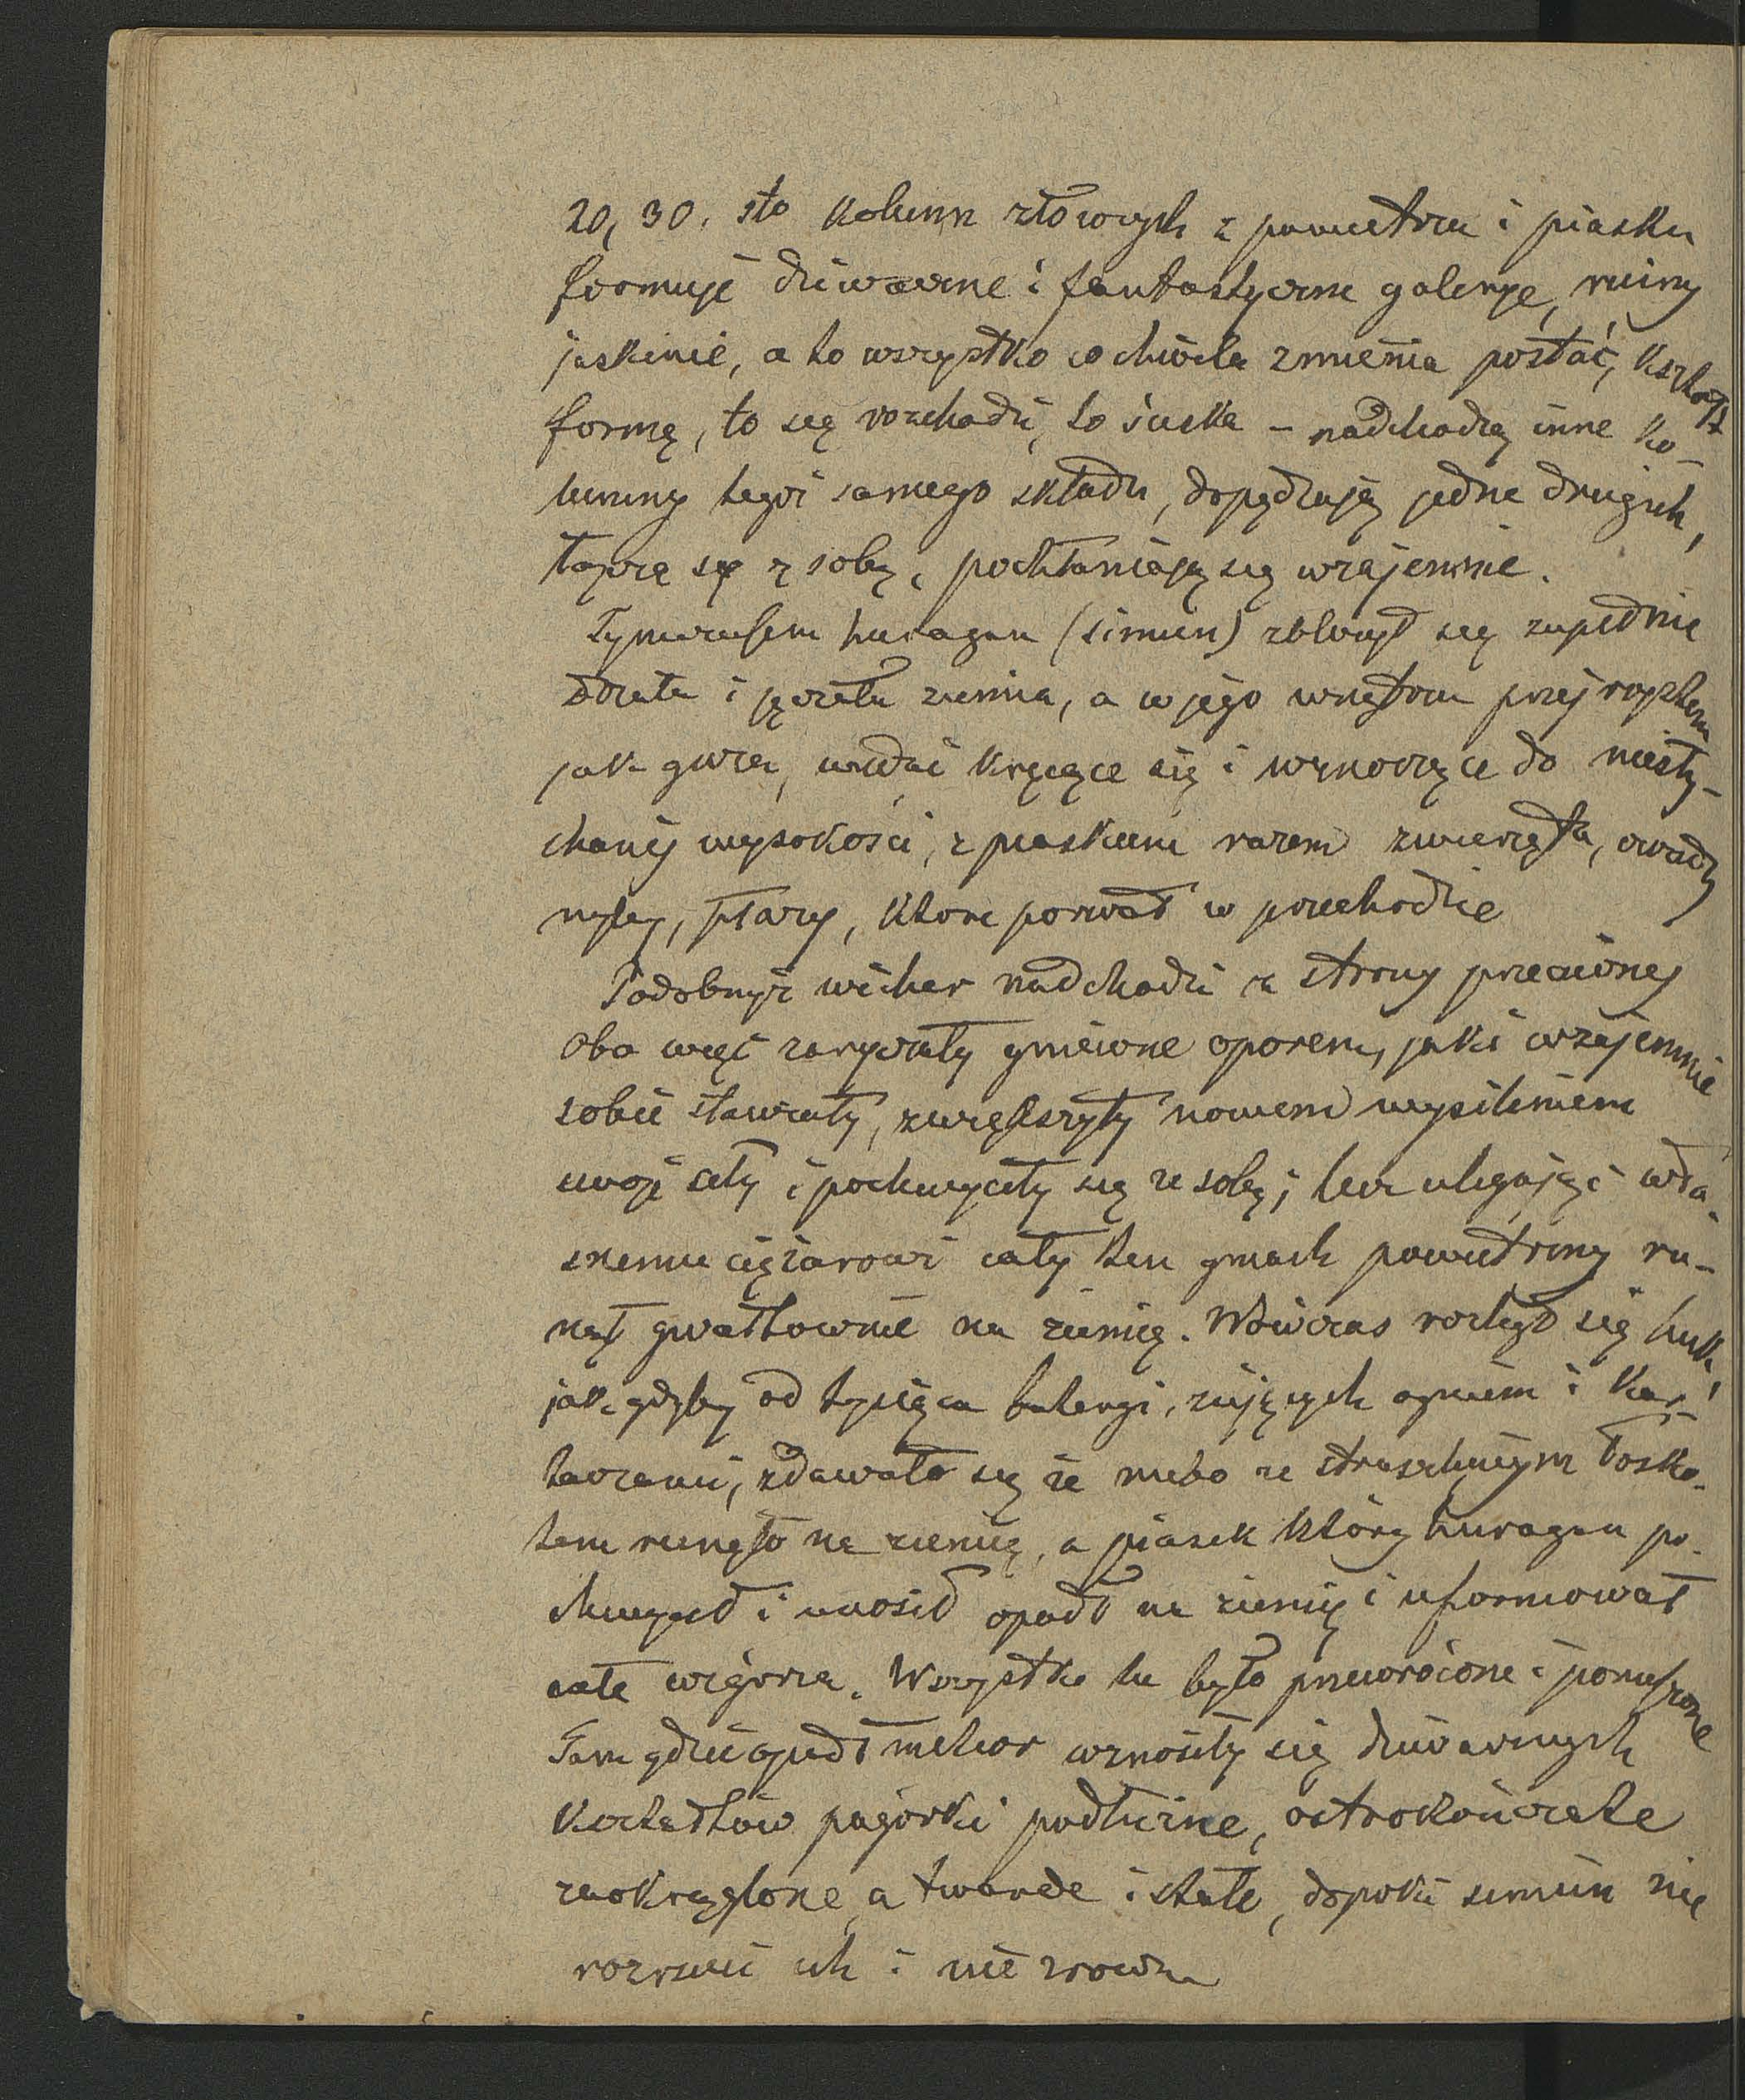 20, 30, sto kolumn złowych z powietrza i piasku
formuje dziwaczne i fantastyczne galerye, ruiny
jaskinie, a to wszystko co chwila zmienia postać, kształt
formę, to się rozchodzi, to ściska – nadchodzą inne ko-
lumny tegoż samego składu, dopędzają jedne drugich,
łączą się z sobą, pochłaniają się wzajemnie.
Tymczasem huragan (simun) zbliżył się zupełnie
drżała i jęczała ziemia, a w jego wnętrzu przejrzystem
jak gaza, widać kręcące się i wznoszące do niesły-
chanej wysokości, z piaskiem razem zwierzęta, owady
ryby, ptaki, które porwał w przechodzie
Podobnyż wicher nadchodzi z strony przeciwnej
Oba więc zaryczały gniewne oporem, jaki wzajemnie
sobie stawiały, zwiększyły nowem wysileniem
swoje siły i pochwyciły się ze sobą; lecz ulegając wła-
snemu ciężarowi cały ten gmach powietrzny ru-
nął gwałtownie na ziemię. Wówczas rozległ się huk,
jak gdyby od tysiąca bateryi, ziejących ogniem i kar-
taczami, zdawało się że niebo ze straszliwym łosko-
tem runęło na ziemię, a piasek który huragan po-
chwycił i unosił opadł na ziemię i uformował
całe wzgórza. Wszystko tu było przewrócone i poruszone
Tam gdzie opadł meteor wznosiły się dziwacznych
kształtów pagórki podłużne, ostrokończate
zaokrąglone, a twarde i stałe, dopóki simun nie
rozrzuci ich i nie zrówna